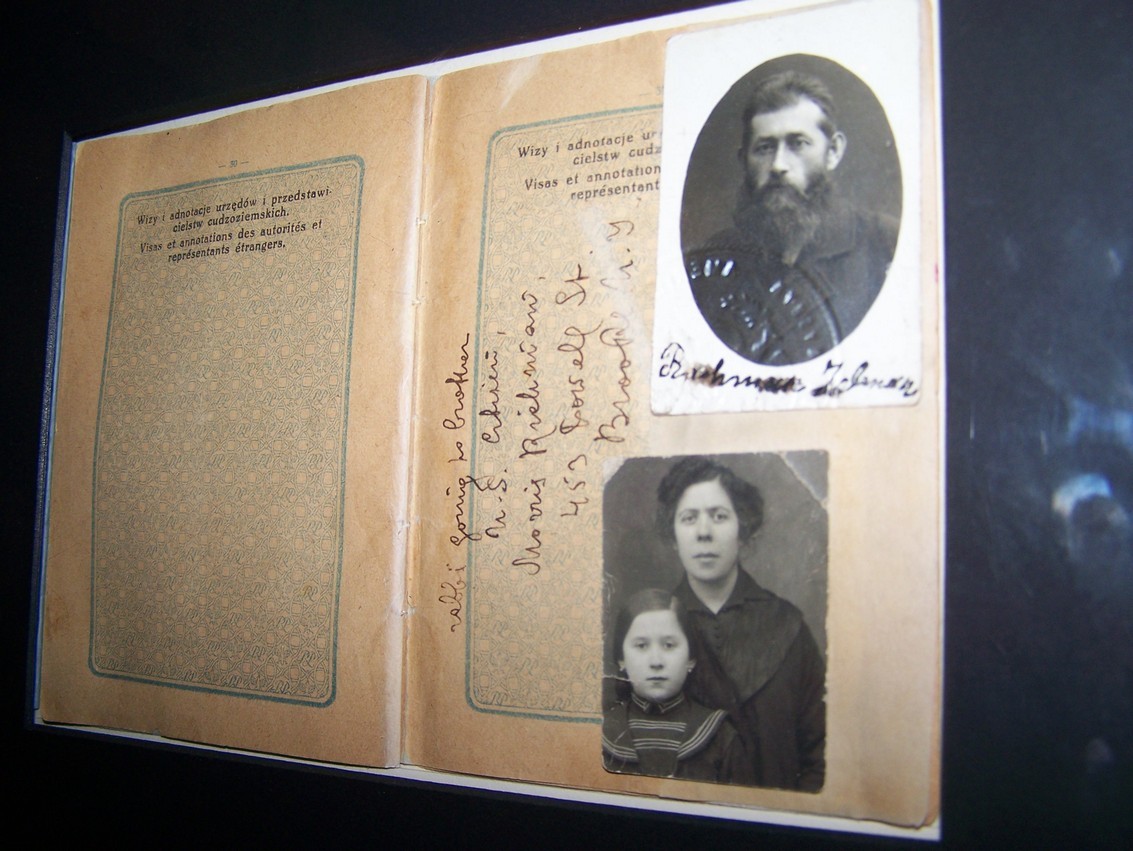 — 30 —
Wizy i adnotacje urzędów i przedstawi-
cielstw cudzoziemskich.
Visas et annotations des autorités et
représentants étrangers.
Wizy i adnotacje ur
cielstw cudz
Visas et annotation
représentant
rabbi going to brother
U.S. citizen,
Morris
453 St.
N.Y